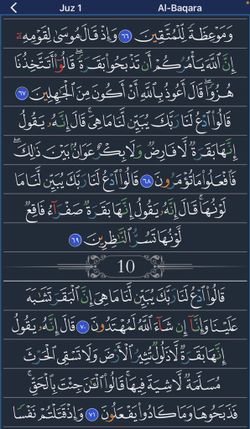 Juz 1 Al-Baqara
وَمَوْعِظَةً لِّلْمُتَّقِينَ ٦٦ وَإِذْ قَالَ مُوسَىٰ لِقَوْمِهِۦٓ
إِنَّ ٱللَّهَ يَأْمُرُكُمْ أَن تَذْبَحُوا۟ بَقَرَةً ۖ قَالُوٓا۟ أَتَتَّخِذُنَا
هُزُوًا ۖ قَالَ أَعُوذُ بِٱللَّهِ أَنْ أَكُونَ مِنَ ٱلْجَٰهِلِينَ ٦٧
قَالُوا۟ ٱدْعُ لَنَا رَبَّكَ يُبَيِّن لَّنَا مَا هِىَ ۚ قَالَ إِنَّهُۥ يَقُولُ
إِنَّهَا بَقَرَةٌ لَّا فَارِضٌ وَلَا بِكْرٌ عَوَانٌۢ بَيْنَ ذَٰلِكَ ۖ
فَٱفْعَلُوا۟ مَا تُؤْمَرُونَ ٦٨ قَالُوا۟ ٱدْعُ لَنَا رَبَّكَ يُبَيِّن لَّنَا مَا
لَوْنُهَا ۚ قَالَ إِنَّهُۥ يَقُولُ إِنَّهَا بَقَرَةٌ صَفْرَآءُ فَاقِعٌ
لَّوْنُهَا تَسُرُّ ٱلنَّٰظِرِينَ ٦٩
10
قَالُوا۟ ٱدْعُ لَنَا رَبَّكَ يُبَيِّن لَّنَا مَا هِىَ إِنَّ ٱلْبَقَرَ تَشَٰبَهَ
عَلَيْنَا وَإِنَّآ إِن شَآءَ ٱللَّهُ لَمُهْتَدُونَ ٧٠ قَالَ إِنَّهُۥ يَقُولُ
إِنَّهَا بَقَرَةٌ لَّا ذَلُولٌ تُثِيرُ ٱلْأَرْضَ وَلَا تَسْقِى ٱلْحَرْثَ
مُسَلَّمَةٌ لَّا شِيَةَ فِيهَا ۚ قَالُوا۟ ٱلْـَٰٔنَ جِئْتَ بِٱلْحَقِّ ۚ
فَذَبَحُوهَا وَمَا كَادُوا۟ يَفْعَلُونَ ٧١ وَإِذْ قَتَلْتُمْ نَفْسًا